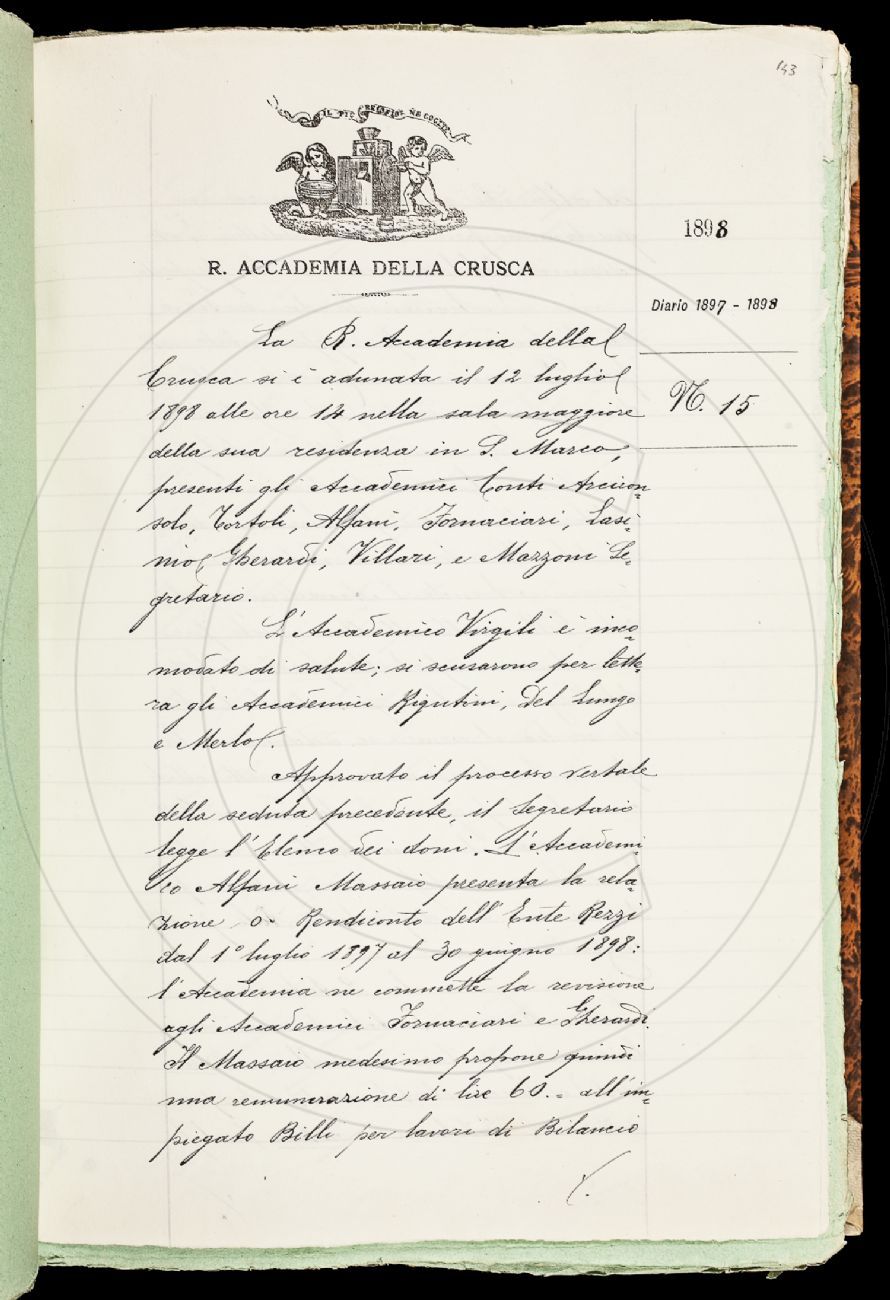 143
IL PIÙ BEL FIOR NE COGLIE
1898
R. ACCADEMIA DELLA CRUSCA
Diario 1897 - 1898
N. 15
La R. Accademia della
Crusca si è adunata il 12 luglio
1898 alle ore 14 nella sala maggiore
della sua residenza in S. Marco,
presenti gli Accademici Conti Arcicon=
solo, Tortoli, Alfani, Fornaciari, Lasi=
nio, Gherardi, Villari, e Mazzoni Se=
gretario.
L'Accademico Virgili è inco=
modato di salute; si scusarono per lette=
ra gli Accademici Rigutini, Del Lungo
e Merlo.
Approvato il processo verbale
della seduta precedente, il Segretario
legge l'Elenco dei doni. L'Accademi=
co Alfani Massaio presenta la rela=
zione o Rendiconto dell'Ente Rezzi
dal 1° luglio 1897 al 30 giugno 1898:
l'Accademia ne commette la revisione
agli Accademici Fornaciari e Gherardi.
Il Massaio medesimo propone quindi
una remunerazione di lire 60.= all'im=
piegato Billi per lavori di Bilancio